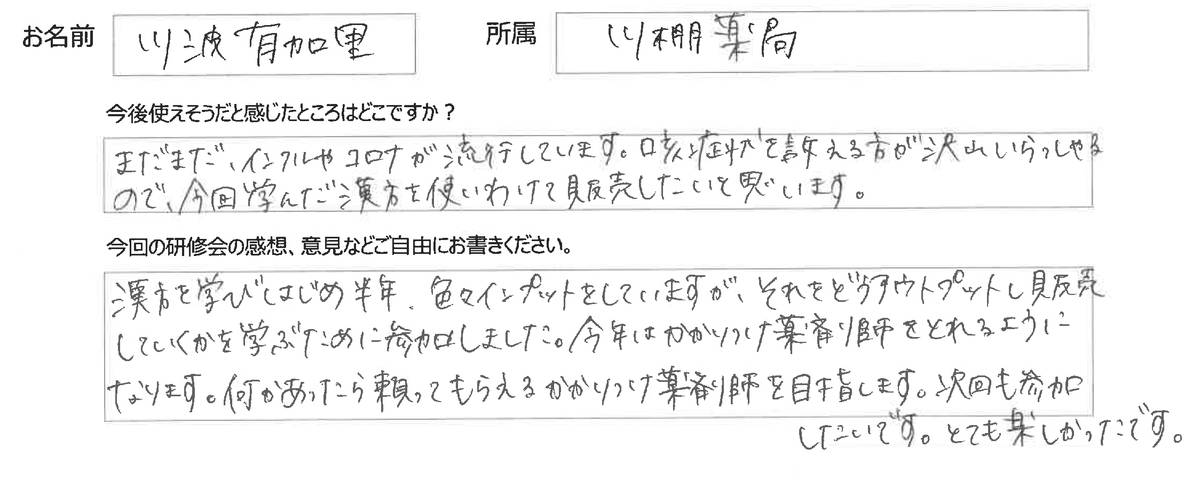 お名前 川波有加里 所属 川棚薬局
今後使えそうだと感じたところはどこですか？
まだまだ、インフルや コロナが流行しています。咳症状を訴える方が沢山いらっしゃる
ので、今回学んだ漢方を使いわけて販売したいと思います。
今回の研修会の感想、意見などご自由にお書きください。
漢方を学びはじめ半年、色々インプットをしていますが、それをどうアウトプットし販売
していくかを学ぶために参加しました。今年はかかりつけ薬剤師をとれるように
なります。何かあったら頼ってもらえるかかりつけ薬剤師を目指します。次回も参加
したいです。とても楽しかったです。